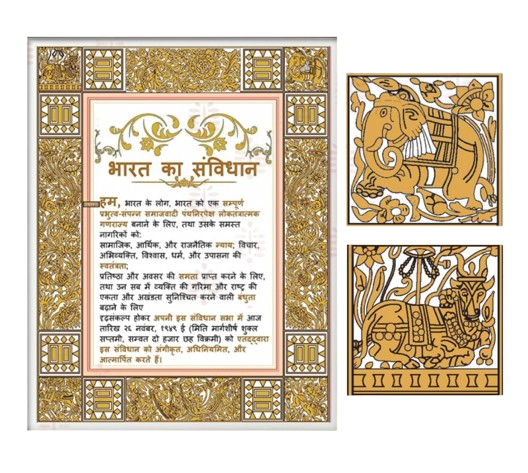 भारत का संविधान
हम, भारत के लोग, भारत को एक सम्पूर्ण
प्रभुत्व-संपन्न समाजवादी पंथनिरपेक्ष लोकतंत्रात्मक
गणराज्य बनाने के लिए, तथा उसके समस्त
नागरिकों को:
सामाजिक, आर्थिक, और राजनैतिक न्याय; विचार,
अभिव्यक्ति, विश्वास, धर्म, और उपासना की
स्वतंत्रता;
प्रतिष्ठा और अवसर की समता प्राप्त करने के लिए,
तथा उन सब में व्यक्ति की गरिमा और राष्ट्र की
एकता और अखंडता सुनिश्चित करने वाली बंधुता
बढ़ाने के लिए
दृढसंकल्प होकर अपनी इस संविधान सभा में आज
तारिख २६ नवंबर, १९४९ ई (मिति मार्गशीर्ष शुक्ल
सप्तमी, सम्वत दो हजार छह विक्रमी) को एतद्द्वारा
इस संविधान को अंगीकृत, अधिनियमित, और
आत्मार्पित करते हैं।